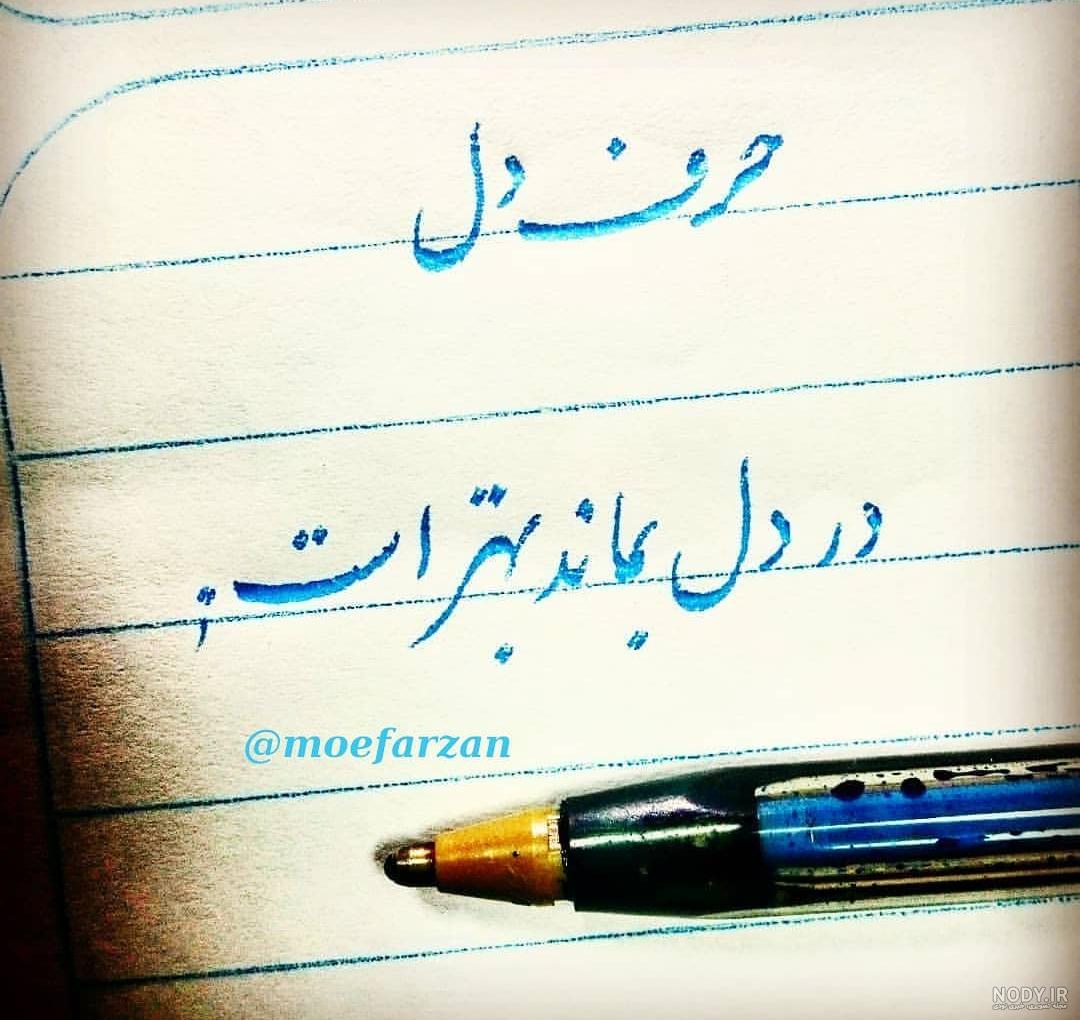 حرف دل
در دل بماند بهتر است
@moefarzan
NODY.IR